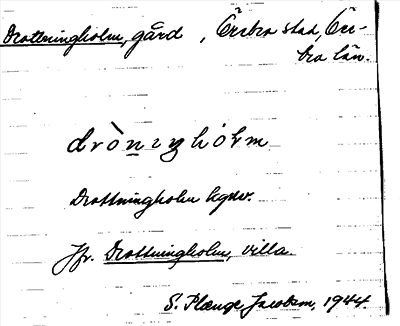 Drottningholm, gård, Örebro stad, Öre-
bro län.
drònıŋhòḷm
Drottningholm kgsv.
Jfr. Drottningholm, villa.
S. Plænge Jacobson, 1944.